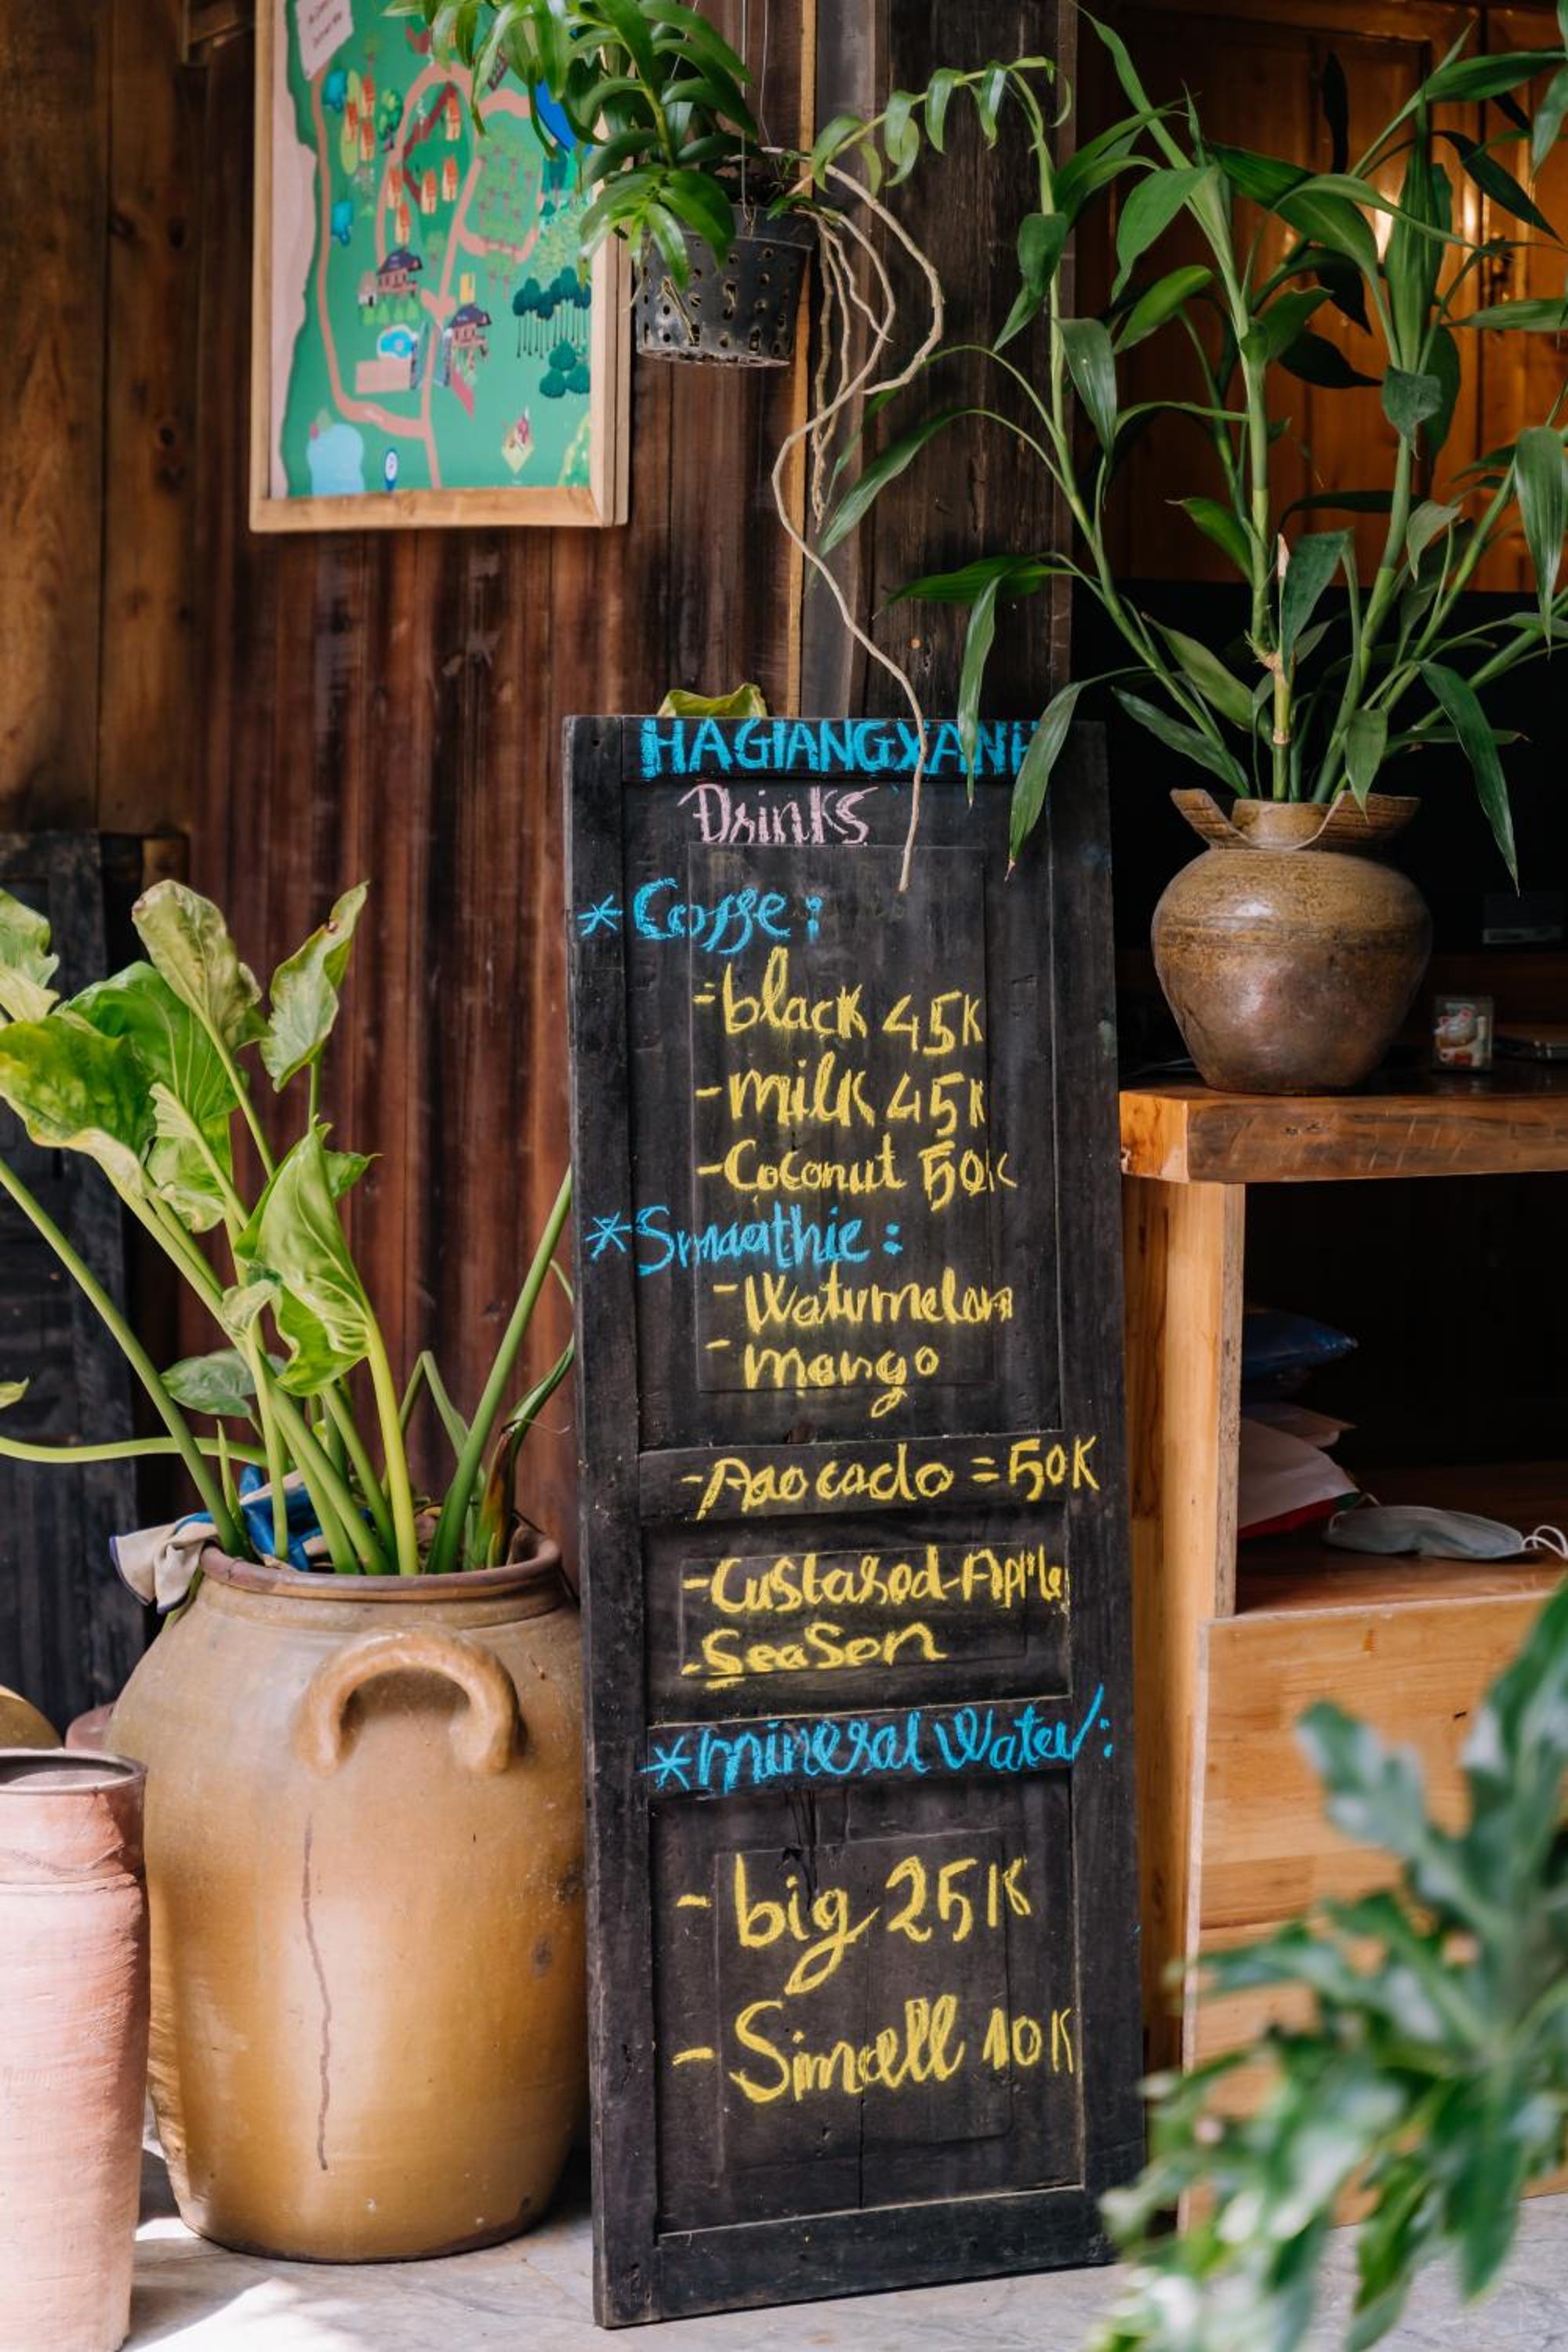 HAGIANGXANH
Drinks
* Coffe:
- black 45K
- milk 45K
- Coconut 50K
* Smoothie:
- Watermelon
- mango
- Avocado = 50K
- Custared-Apple
- Season
* mineral Water:
- big 25K
- Small 10K